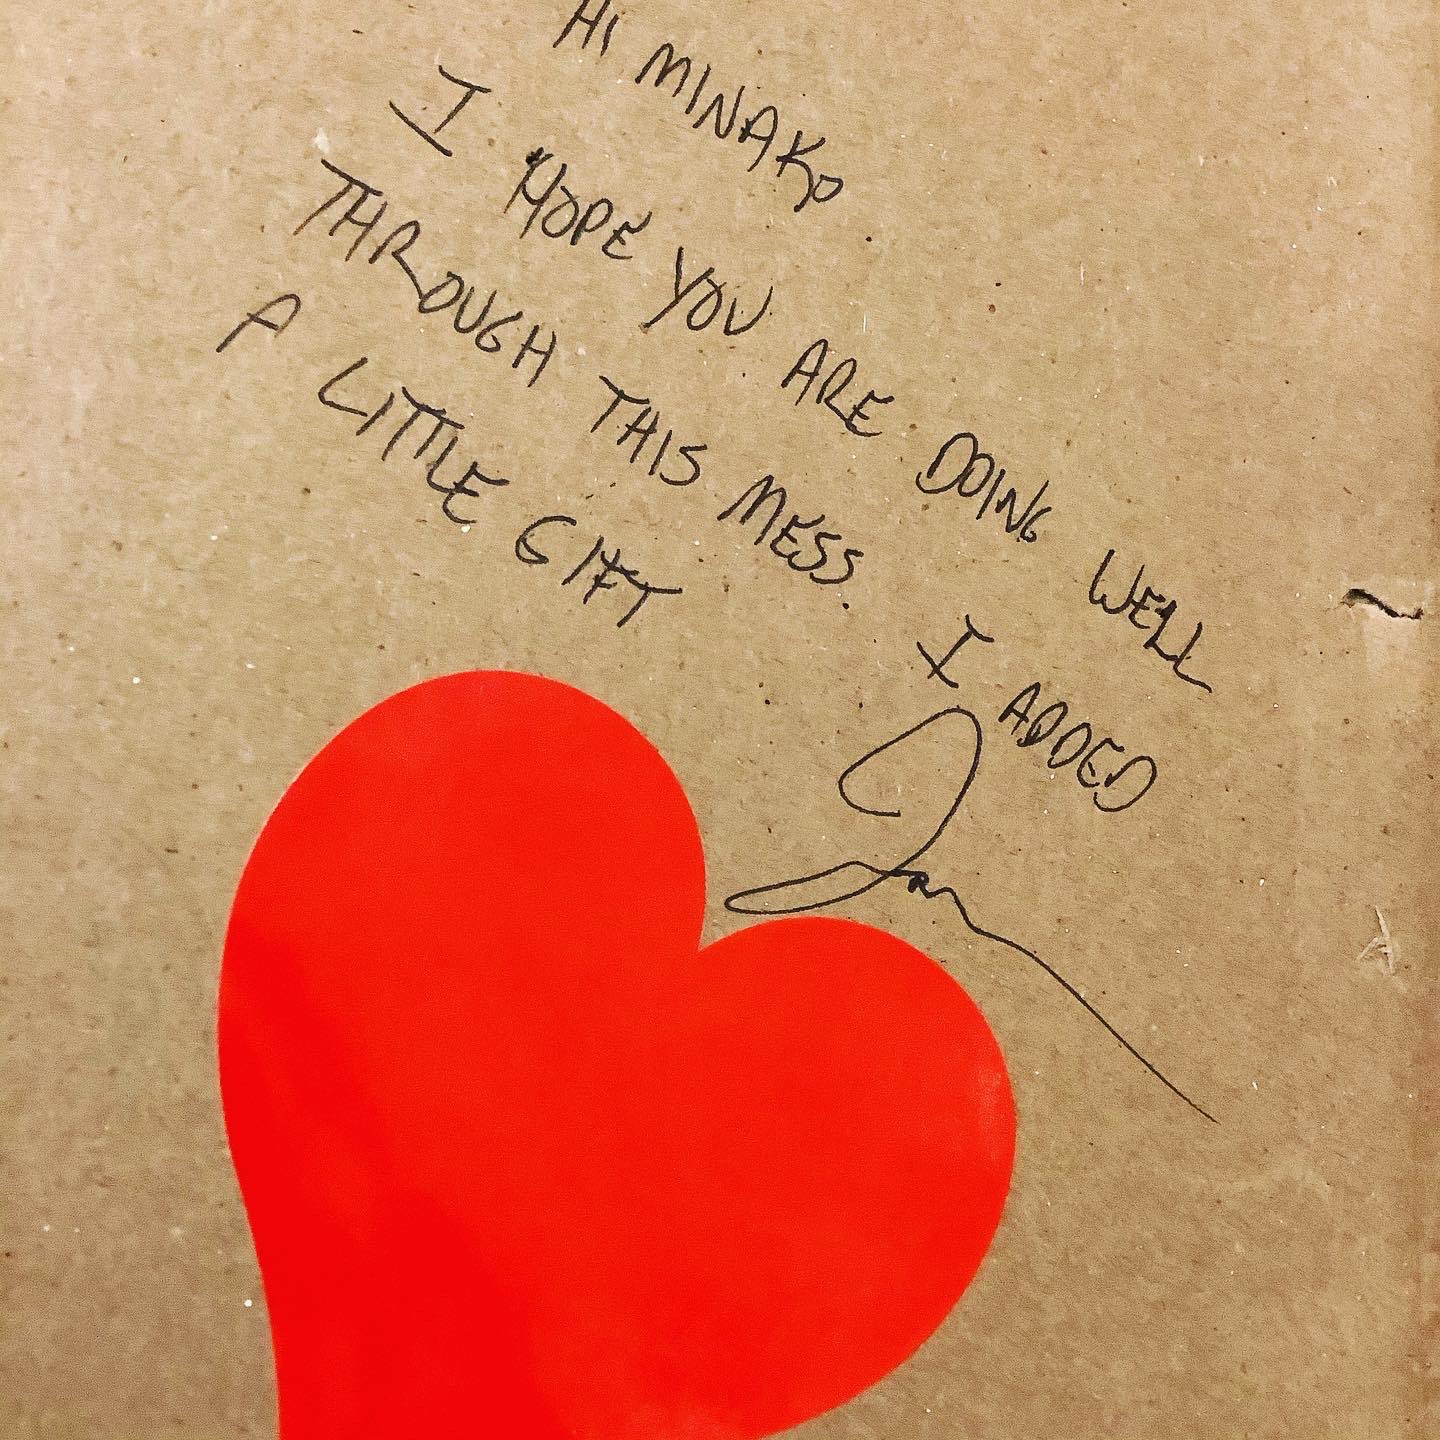 HI MINAKO
I HOPE YOU ARE DOING WELL
THROUGH THIS MESS. I ADDED
A LITTLE GIFT